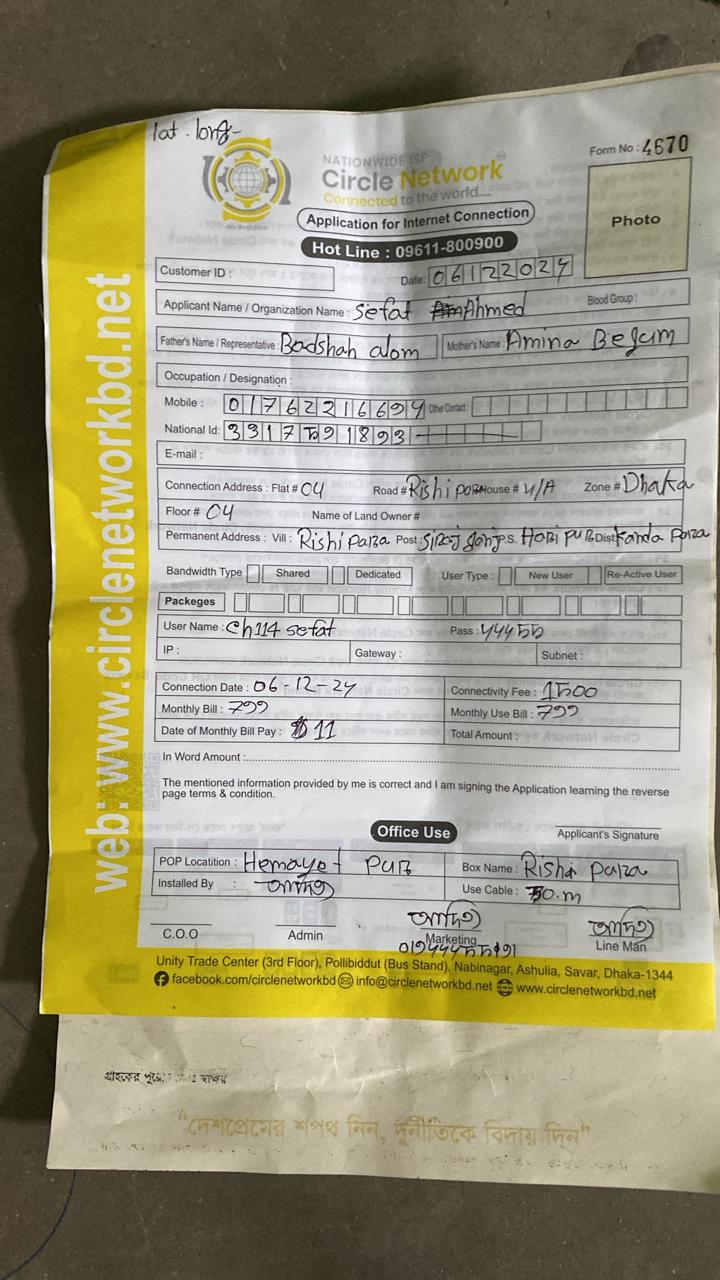 lat. long-
NATIONWIDE ISP
Circle Network
Connected to the world...
Form No : 4670
Photo
Application for Internet Connection
Hot Line : 09611-800900
Customer ID :
Date: 06122024
Applicant Name / Organization Name : Sefat Ahmed
Blood Group :
Father's Name / Representative : Badshah alom
Mother's Name : Amina Begum
Occupation / Designation :
Mobile : 01762216694 Other Contact :
National Id: 3317591893
E-mail :
Connection Address : Flat # 04 Road # Rishi para House # 4/A Zone # Dhaka
Floor # 04 Name of Land Owner #
Permanent Address : Vill : Rishi para Post Sirajganj P.S. Hari pur Dist Kanda para
Bandwidth Type Shared Dedicated User Type : New User Re-Active User
Packeges
User Name : ch114 sefat Pass : 44455
IP : Gateway : Subnet :
Connection Date : 06-12-24 Connectivity Fee : 1500
Monthly Bill : 799 Monthly Use Bill : 799
Date of Monthly Bill Pay : 11 Total Amount :
In Word Amount :
The mentioned information provided by me is correct and I am signing the Application learning the reverse
page terms & condition.
Office Use
Applicant's Signature
POP Locatition : Hemayet Pur Box Name : Rishi para
Installed By : Use Cable : 30.m
C.O.O Admin Marketing Line Man
Unity Trade Center (3rd Floor), Pollibiddut (Bus Stand), Nabinagar, Ashulia, Savar, Dhaka-1344
facebook.com/circlenetworkbd info@circlenetworkbd.net www.circlenetworkbd.net
web: www.circlenetworkbd.net
"দেশপ্রেমের শপথ নিন, দুর্নীতিকে বিদায় দিন"